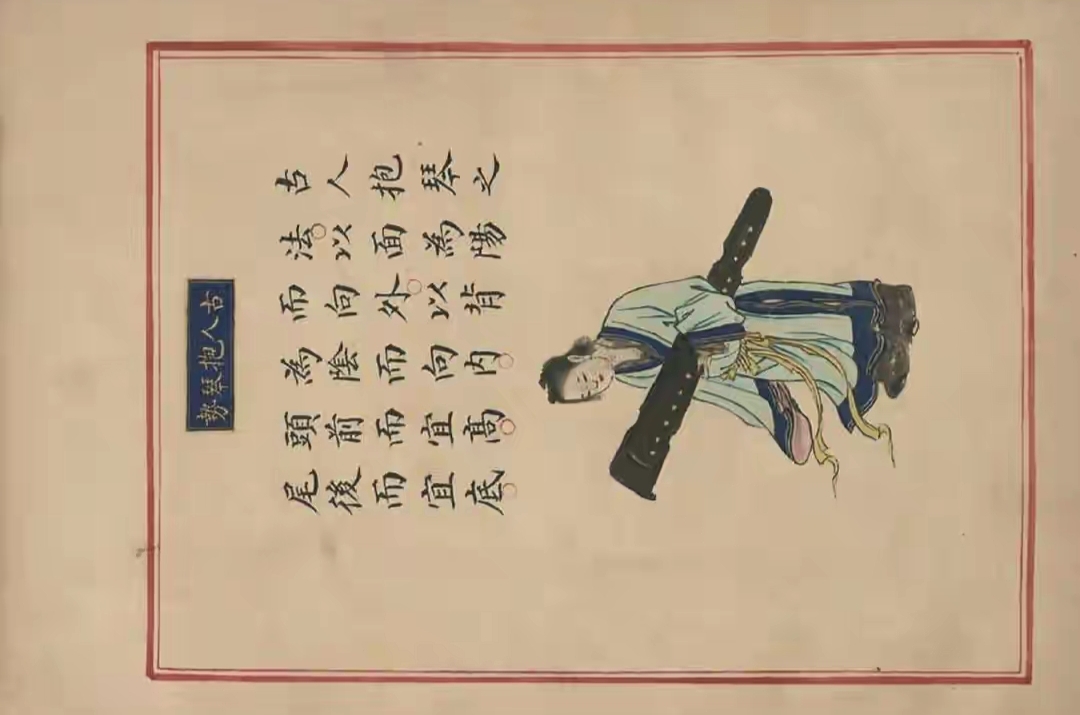 古人抱琴勢
古人抱琴之
法。以面為陽
而向外。以背
為陰而向內。
頭前而宜高。
尾後而宜底。